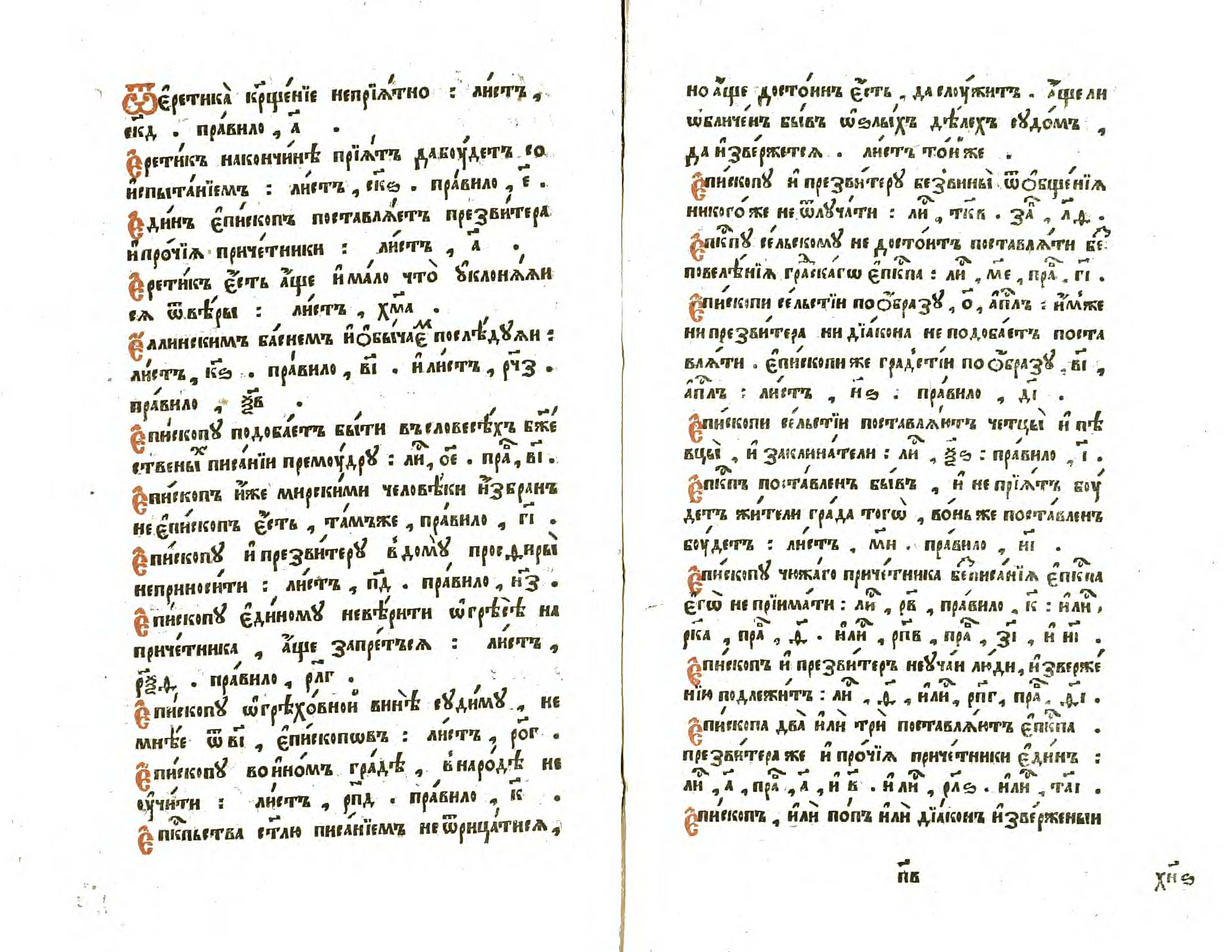 Ѿ є҆ретика̀ кр҃ще́нїе непрїѧ́тно : ли́стъ ,
скд . пра́вило , а҃ .
Є҆ретикъ наконч́инѣ прїѧ́тъ дабꙋдетъ со
и҆спыта́нїемъ : ли́стъ , скѕ . пра́вило , є҃ .
Є҆ди́нъ є҆пи́скопъ поставлѧ́етъ презви́тера
и҆про́чїѧ приче́тники : ли́стъ , а҃ .
Є҆ретикъ є҆́сть а҆́ще и҆мало что̀ ᲂу҆клонѧ́ѧи
сѧ ѿвѣ́ры : ли́стъ , хм҃а .
Є҆́ллинскимъ ба́снемъ и҆ѻ҆бы́чаєⷨ послѣ́дꙋѧи :
ли́стъ , к҃ѕ . пра́вило , в҃і . и҆ли́стъ , рч҃з .
пра́вило , ѯ҃в .
Є҆пи́скопꙋ подоба́етъ бы́ти въсловесѣ́хъ бж҃е
ствены́ⷯ писа́нїи премоу́дрꙋ : лиⷭ҇ , о҃е . праⷡ҇ , в҃і .
Є҆пи́скопъ и҆́же мирски́ми человѣ́ки и҆збранъ
не є҆пи́скопъ є҆́сть , та́мъже , пра́вило , г҃і .
Є҆пи́скопꙋ и҆презви́терꙋ в̾до́мꙋ просѳиры̀
неприноси́ти : ли́стъ , п҃д . пра́вило , н҃з .
Є҆пи́скопꙋ є҆ди́номꙋ невѣ́рити ѡ҆грѣ́сѣ на
приче́тника , а҆́ще запре́тъсѧ : ли́стъ ,
рѯ҃ѳ . пра́вило , рл҃г .
Є҆пи́скопꙋ ѡ҆грѣхо́внои винѣ̀ сꙋди́мꙋ , не
мнѣ́е ѿ в҃і , є҆пи́скопѡвъ : ли́стъ , ро҃г .
Є҆пи́скопꙋ во и҆но́мъ гра́дѣ , в̾наро́дѣ не
оу҆чи́ти : ли́стъ , рп҃д . пра́вило , к҃ .
Є҆пⷭ҇кпьства ст҃лю писа́нїемъ не ѿрица́тисѧ ,
но а҆́ще досто́инъ є҆́сть , даслоу́житъ . а҆́ще ли
ѡ҆бличе́нъ бы́въ ѡ҆ѕлы́хъ дѣ́лехъ сꙋдо́мъ ,
да и҆зве́ржетсѧ . ли́стъ то́и же .
Є҆пи́скопꙋ и҆ презви́терꙋ без̾вины̀ ѿѻ҆бще́нїѧ
никого́же не ѿлꙋча́ти : лиⷭ҇ , тк҃в . заⷱ҇ , л҃ѳ .
Є҆пⷭ҇кпꙋ се́льскомꙋ не досто́итъ поставлѧ́ти беⷥ
повелѣ́нїѧ граⷣскагѡ є҆пⷭ҇кпа : лиⷭ҇ , м҃е , праⷡ҇ , г҃і .
Є҆пи́скопи се́льстїи поѻ҆́бразꙋ , о҃ , а҆пⷭ҇лъ : и҆̀мже
ни презви́тера ни дїа́кона не подоба́етъ поста
влѧ́ти . є҆пи́скопи же гра́дстїи по ѻ҆́бразꙋ , в҃і ,
а҆пⷭ҇лъ : ли́стъ , н҃ѕ . пра́вило , д҃і .
Є҆пи́скопи се́льстїи поставлѧ́ютъ четцы̀ и҆ пѣ
вцы̀ , и҆ заклина́тели : лиⷭ҇ , ѯ҃ѕ : пра́вило , і҃ .
Є҆пⷭ҇кпъ поста́вленъ бы́въ , и҆ не прїѧ́тъ боу́
детъ жи́тели гра́да тогѡ̀ , во́ньже поста́вленъ
боу́детъ : ли́стъ , м҃н . пра́вило , н҃і .
Є҆пи́скопꙋ чюжа́го приче́тника беⷥписа́нїѧ є҆пⷭ҇кпа
є҆гѡ̀ не прїима́ти : лиⷭ҇ , р҃в , пра́вило , к҃ : и҆лиⷭ҇ ,
рк҃а , праⷡ҇ , ѳ҃ . и҆лиⷭ҇ , рп҃в , праⷡ҇ , з҃і , и҆ н҃і .
Є҆пи́скопъ и҆ презви́теръ неꙋча́и лю́ди , и҆зверже́
нїю подлежи́тъ : лиⷭ҇ , ѳ҃ , и҆лиⷭ҇ , рп҃г , праⷡ҇ , ѳ҃і .
Є҆пи́скопа два̀ и҆лѝ трѝ поставлѧ́ютъ є҆пⷭ҇кпа .
презви́тера же и҆ про́чїѧ приче́тники є҆ди́нъ :
лиⷭ҇ , а҃ , праⷡ҇ , а҃ , и҆ в҃ . и҆лиⷭ҇ , рл҃ѕ . и҆лиⷭ҇ , та҃і .
Є҆пи́скопъ , и҆лѝ по́пъ и҆лѝ дїа́конъ и҆зве́рженыи
п҃в
хн҃ѕ